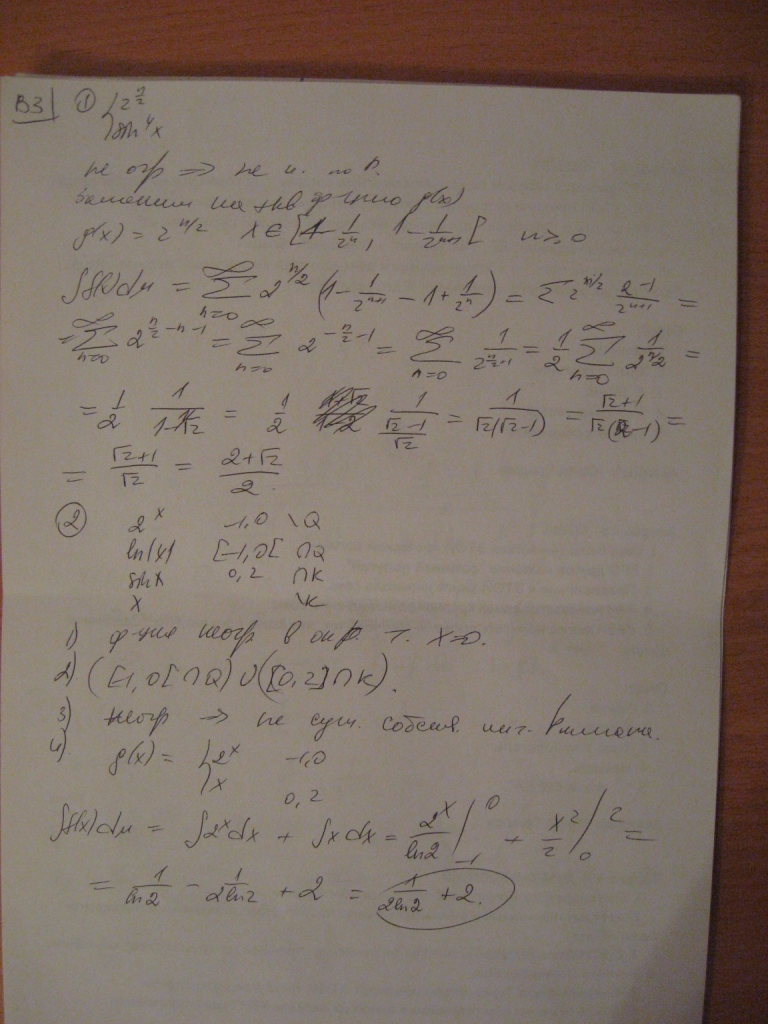 В3 ① { 2^{n/2}
sin⁴x
не огр ⇒ не и. по Р.
Заменим на экв ф-цию g(x)
g(x) = 2^{n/2} x ∈ [1 - 1/2^n, 1 - 1/2^{n+1} [ n ≥ 0
∫f(x)dμ = ∑_{n=0}^∞ 2^{n/2} (1 - 1/2^{n+1} - 1 + 1/2^n) = ∑ 2^{n/2} (2-1)/2^{n+1} =
= ∑_{n=0}^∞ 2^{n/2 - n - 1} = ∑_{n=0}^∞ 2^{-n/2 - 1} = ∑_{n=0}^∞ 1/2^{n/2+1} = 1/2 ∑_{n=0}^∞ 1/2^{n/2} =
= 1/2 1/(1 - 1/√2) = 1/2 1/((√2-1)/√2) = 1/(√2(√2-1)) = (√2+1)/(√2(2-1)) =
= (√2+1)/√2 = (2+√2)/2.
② 2^x -1,0 \Q
ln|x| [-1,0[ ∩Q
sin x 0,2 ∩K
x \K
1) ф-ция неогр в окр. т. x=0.
2) ([-1,0[ ∩Q) ∪ ([0,2] ∩K).
3) неогр ⇒ не сущ. собств. инт. Римана.
4) g(x) = { 2^x -1,0
x 0,2
∫f(x)dμ = ∫2^x dx + ∫x dx = 2^x/ln2 |_{-1}^0 + x²/2 |_0^2 =
= 1/ln2 - 1/2ln2 + 2 = 1/2ln2 + 2.